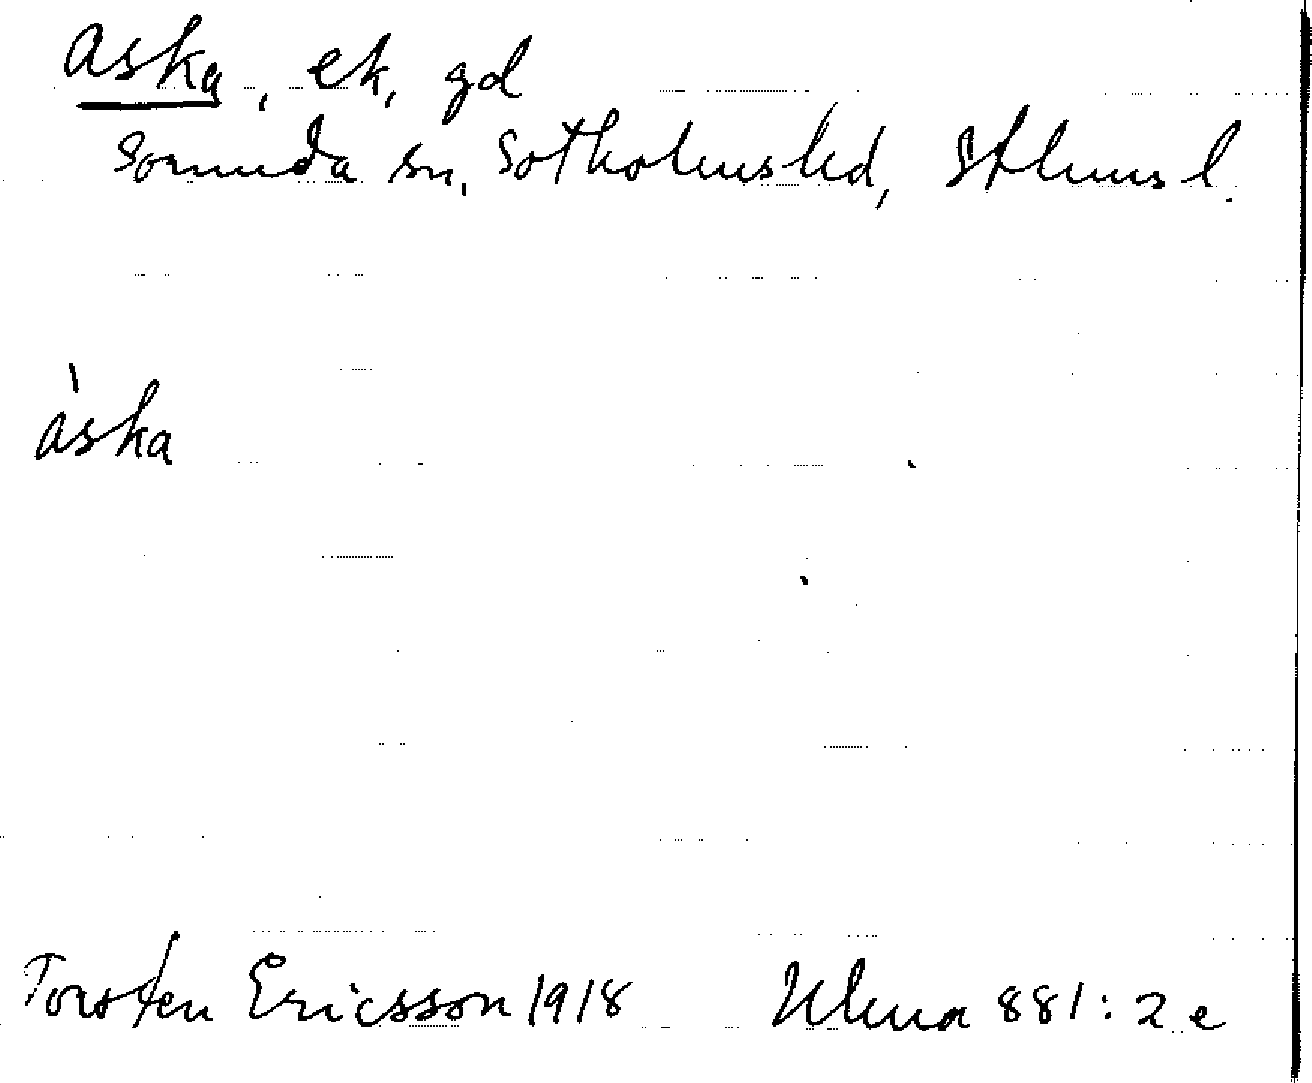 Aska, ek, gd
Sorunda sn, Sotholms hd, Sthlms l.
àska
Torsten Ericsson 1918 Ulma 881:2e